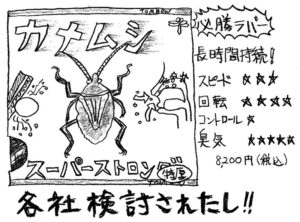 カナムシ
スーパーストロング
特厚
必勝ラバー
長時間持続!
スピード ★★★
回転 ★★★★
コントロール ★
臭気 ★★★★★
8,200円(税込)
各社検討されたし!!